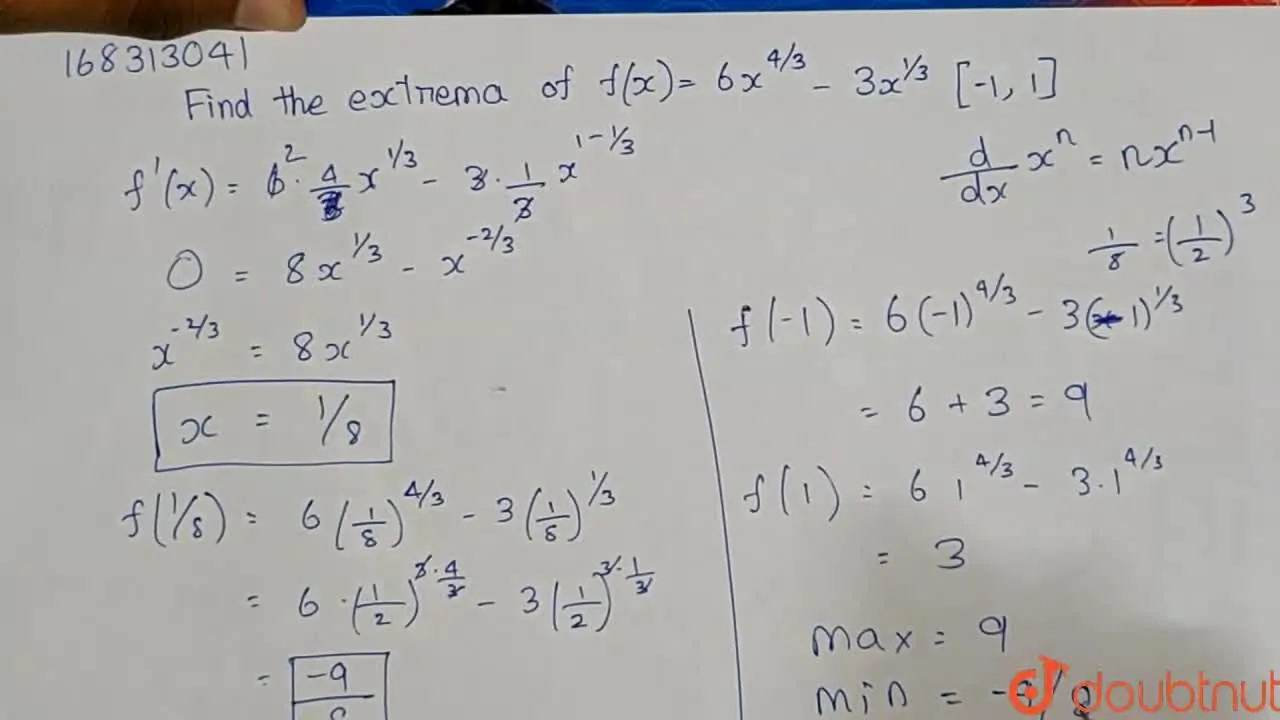 168313041
Find the extrema of f(x) = 6x^4/3 - 3x^1/3 [-1, 1]
f'(x) = 6^2 · 4/3 x^1/3 - 3 · 1/3 x^1-1/3
d/dx x^n = nx^n-1
0 = 8x^1/3 - x^-2/3
1/8 = (1/2)^3
x^-2/3 = 8x^1/3
x = 1/8
f(1/8) = 6(1/8)^4/3 - 3(1/8)^1/3
= 6 · (1/2)^3·4/3 - 3(1/2)^3·1/3
= -9
f(-1) = 6(-1)^4/3 - 3(-1)^1/3
= 6 + 3 = 9
f(1) = 6 1^4/3 - 3·1^4/3
= 3
max = 9
min = -9/8
doubtnut